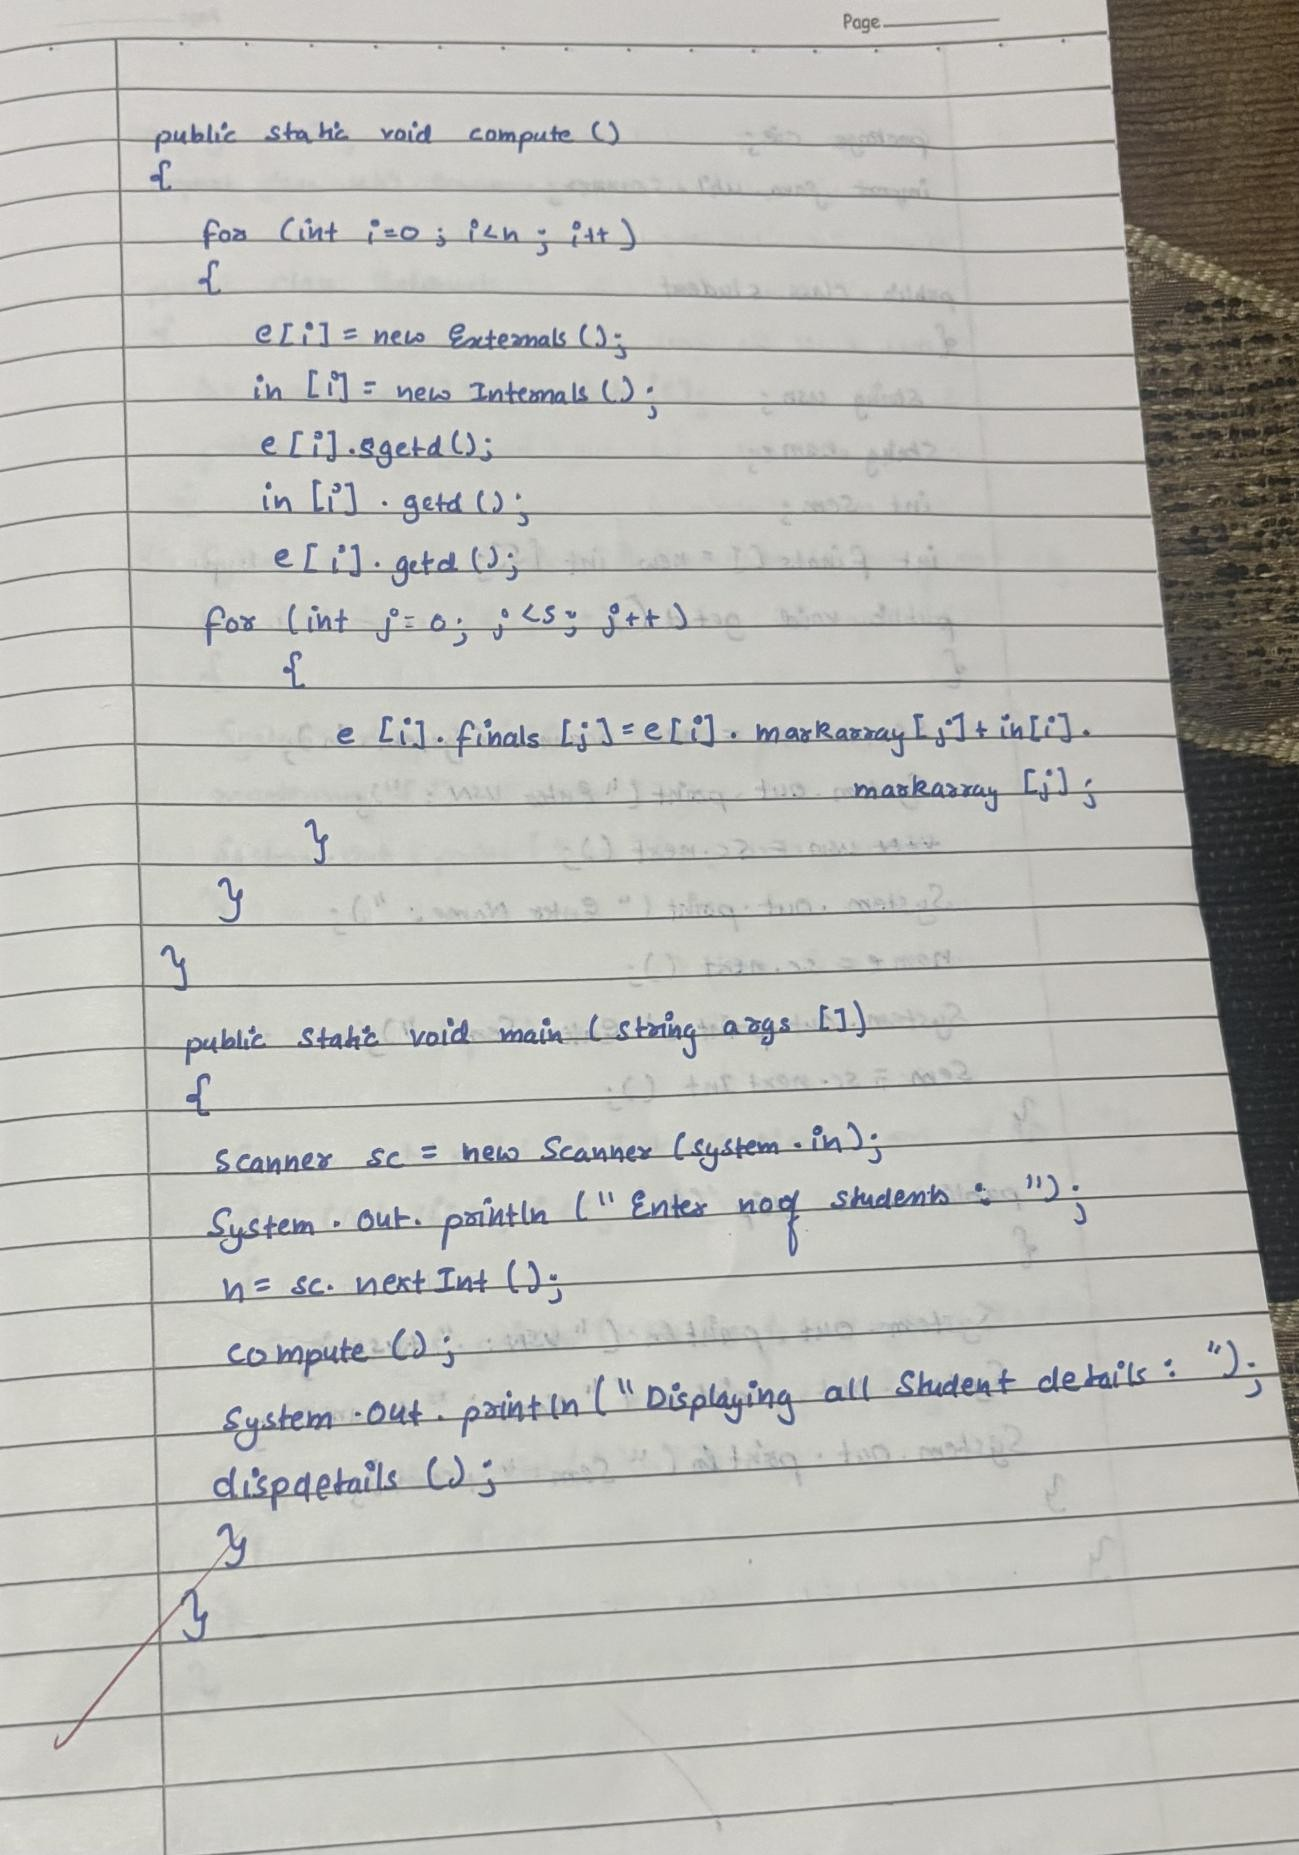 Page
public static void compute ()
{
for (int i=0 ; i<n ; i++ )
{
e[i] = new Externals ();
in [i] = new Internals ();
e [i].sgetd ();
in [i] . getd ();
e [i] . getd ();
for (int j=0; j<5; j++)
{
e [i]. finals [j] = e[i]. markarray [j] + in[i].
markarray [j] ;
}
}
}
public static void main ( string args [])
{
scanner sc = new Scanner (system.in);
System . out. println (" Enter no of students : ");
n= sc. next Int ();
compute ();
system .out . println (" Displaying all Student details : ");
dispdetails ();
}
}